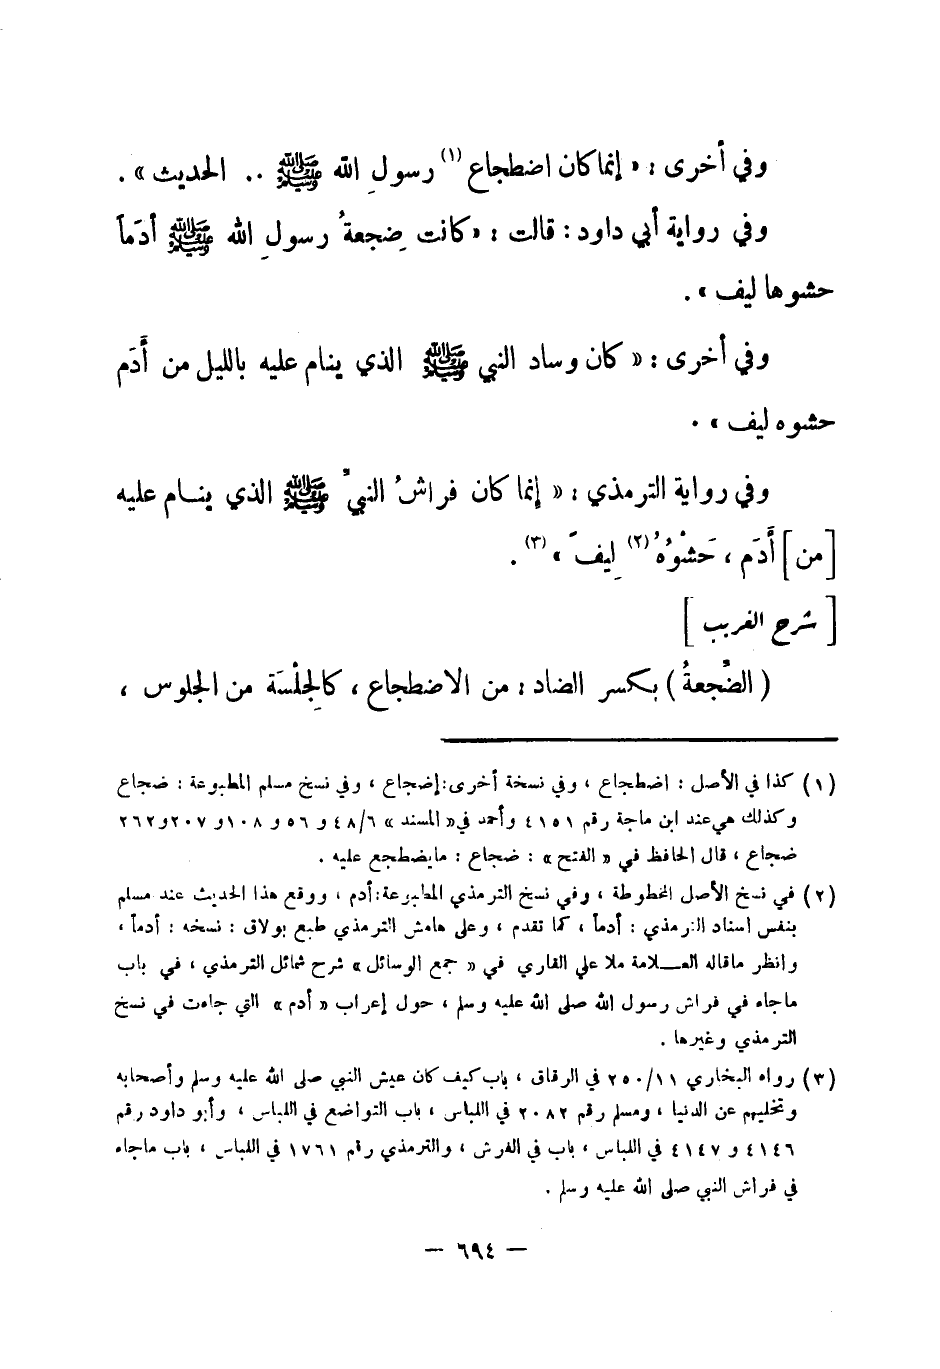 وفي أخرى : « إنما كان اضطجاع (١) رسولِ الله ﷺ .. الحديث » .
وفي رواية أبي داود : قالت : « كانت ضِجعةُ رسولِ الله ﷺ أدَماً
حشوها ليف » .
وفي أخرى : « كان وساد النبي ﷺ الذي ينام عليه بالليل من أَدَم
حشوه ليف » .
وفي رواية الترمذي : « إنما كان فراشُ النبيِّ ﷺ الذي ينـام عليه
[ من ] أَدَم ، حَشْوُهُ (٢) لِيفٌ » (٣) .
[ شرح الغريب ]
( الضِّجعةُ ) بكسر الضاد : من الاضطجاع ، كالجِلْسَة من الجلوس ،
(١) كذا في الأصل : اضطجاع ، وفي نسخة أخرى : إضجاع ، وفي نسخ مسلم المطبوعة : ضجاع
وكذلك هي عند ابن ماجة رقم ٤١٥١ وأحمد في « المسند » ٤٨/٦ و ٥٦ و ١٠٨ و ٢٠٧ و ٢٦٢
ضجاع ، قال الحافظ في « الفتح » : ضجاع : مايضطجع عليه .
(٢) في نسخ الأصل المخطوطة ، وفي نسخ الترمذي المطبوعة : أدم ، ووقع هذا الحديث عند مسلم
بنفس اسناد الترمذي : أدماً ، كما تقدم ، وعلى هامش الترمذي طبع بولاق : نسخه : أدماً ،
وانظر ماقاله العـلامة ملا علي القاري في « جمع الوسائل » شرح شمائل الترمذي ، في باب
ماجاء في فراش رسول الله صلى الله عليه وسلم ، حول إعراب « أدم » التي جاءت في نسخ
الترمذي وغيرها .
(٣) رواه البخاري ٢٥٠/١١ في الرقاق ، باب كيف كان عيش النبي صلى الله عليه وسلم وأصحابه
وتخليهم عن الدنيا ، ومسلم رقم ٢٠٨٢ في اللباس ، باب التواضع في اللباس ، وأبو داود رقم
٤١٤٦ و ٤١٤٧ في اللباس ، باب في الفرش ، والترمذي رقم ١٧٦١ في اللباس ، باب ماجاء
في فراش النبي صلى الله عليه وسلم .
— ٦٩٤ —